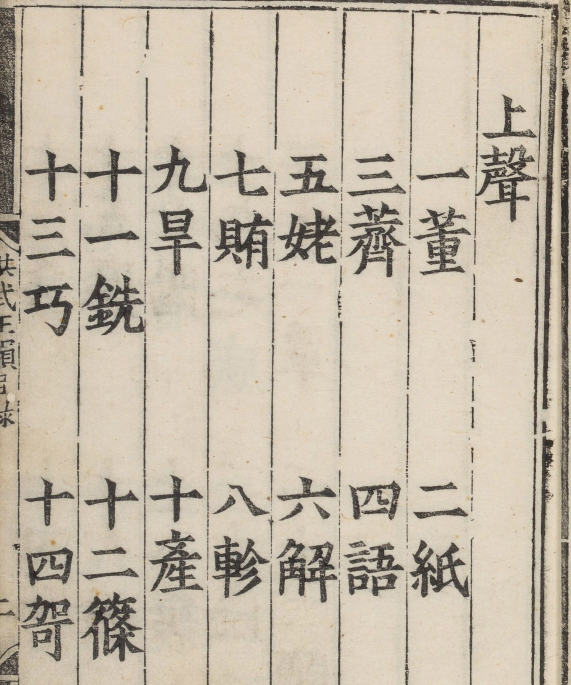 上聲
一董 二紙
三薺 四語
五姥 六解
七賄 八軫
九旱 十產
十一銑 十二篠
十三巧 十四哿
洪武正韻目錄
二